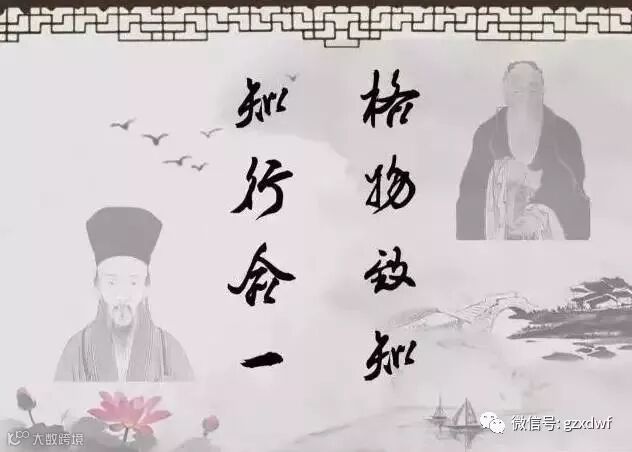 格物致知
知行合一
微信号: gzxdwf
大数跨境